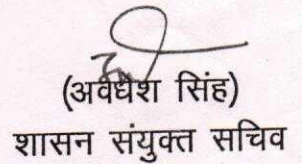 (अवधेश सिंह)
शासन संयुक्त सचिव